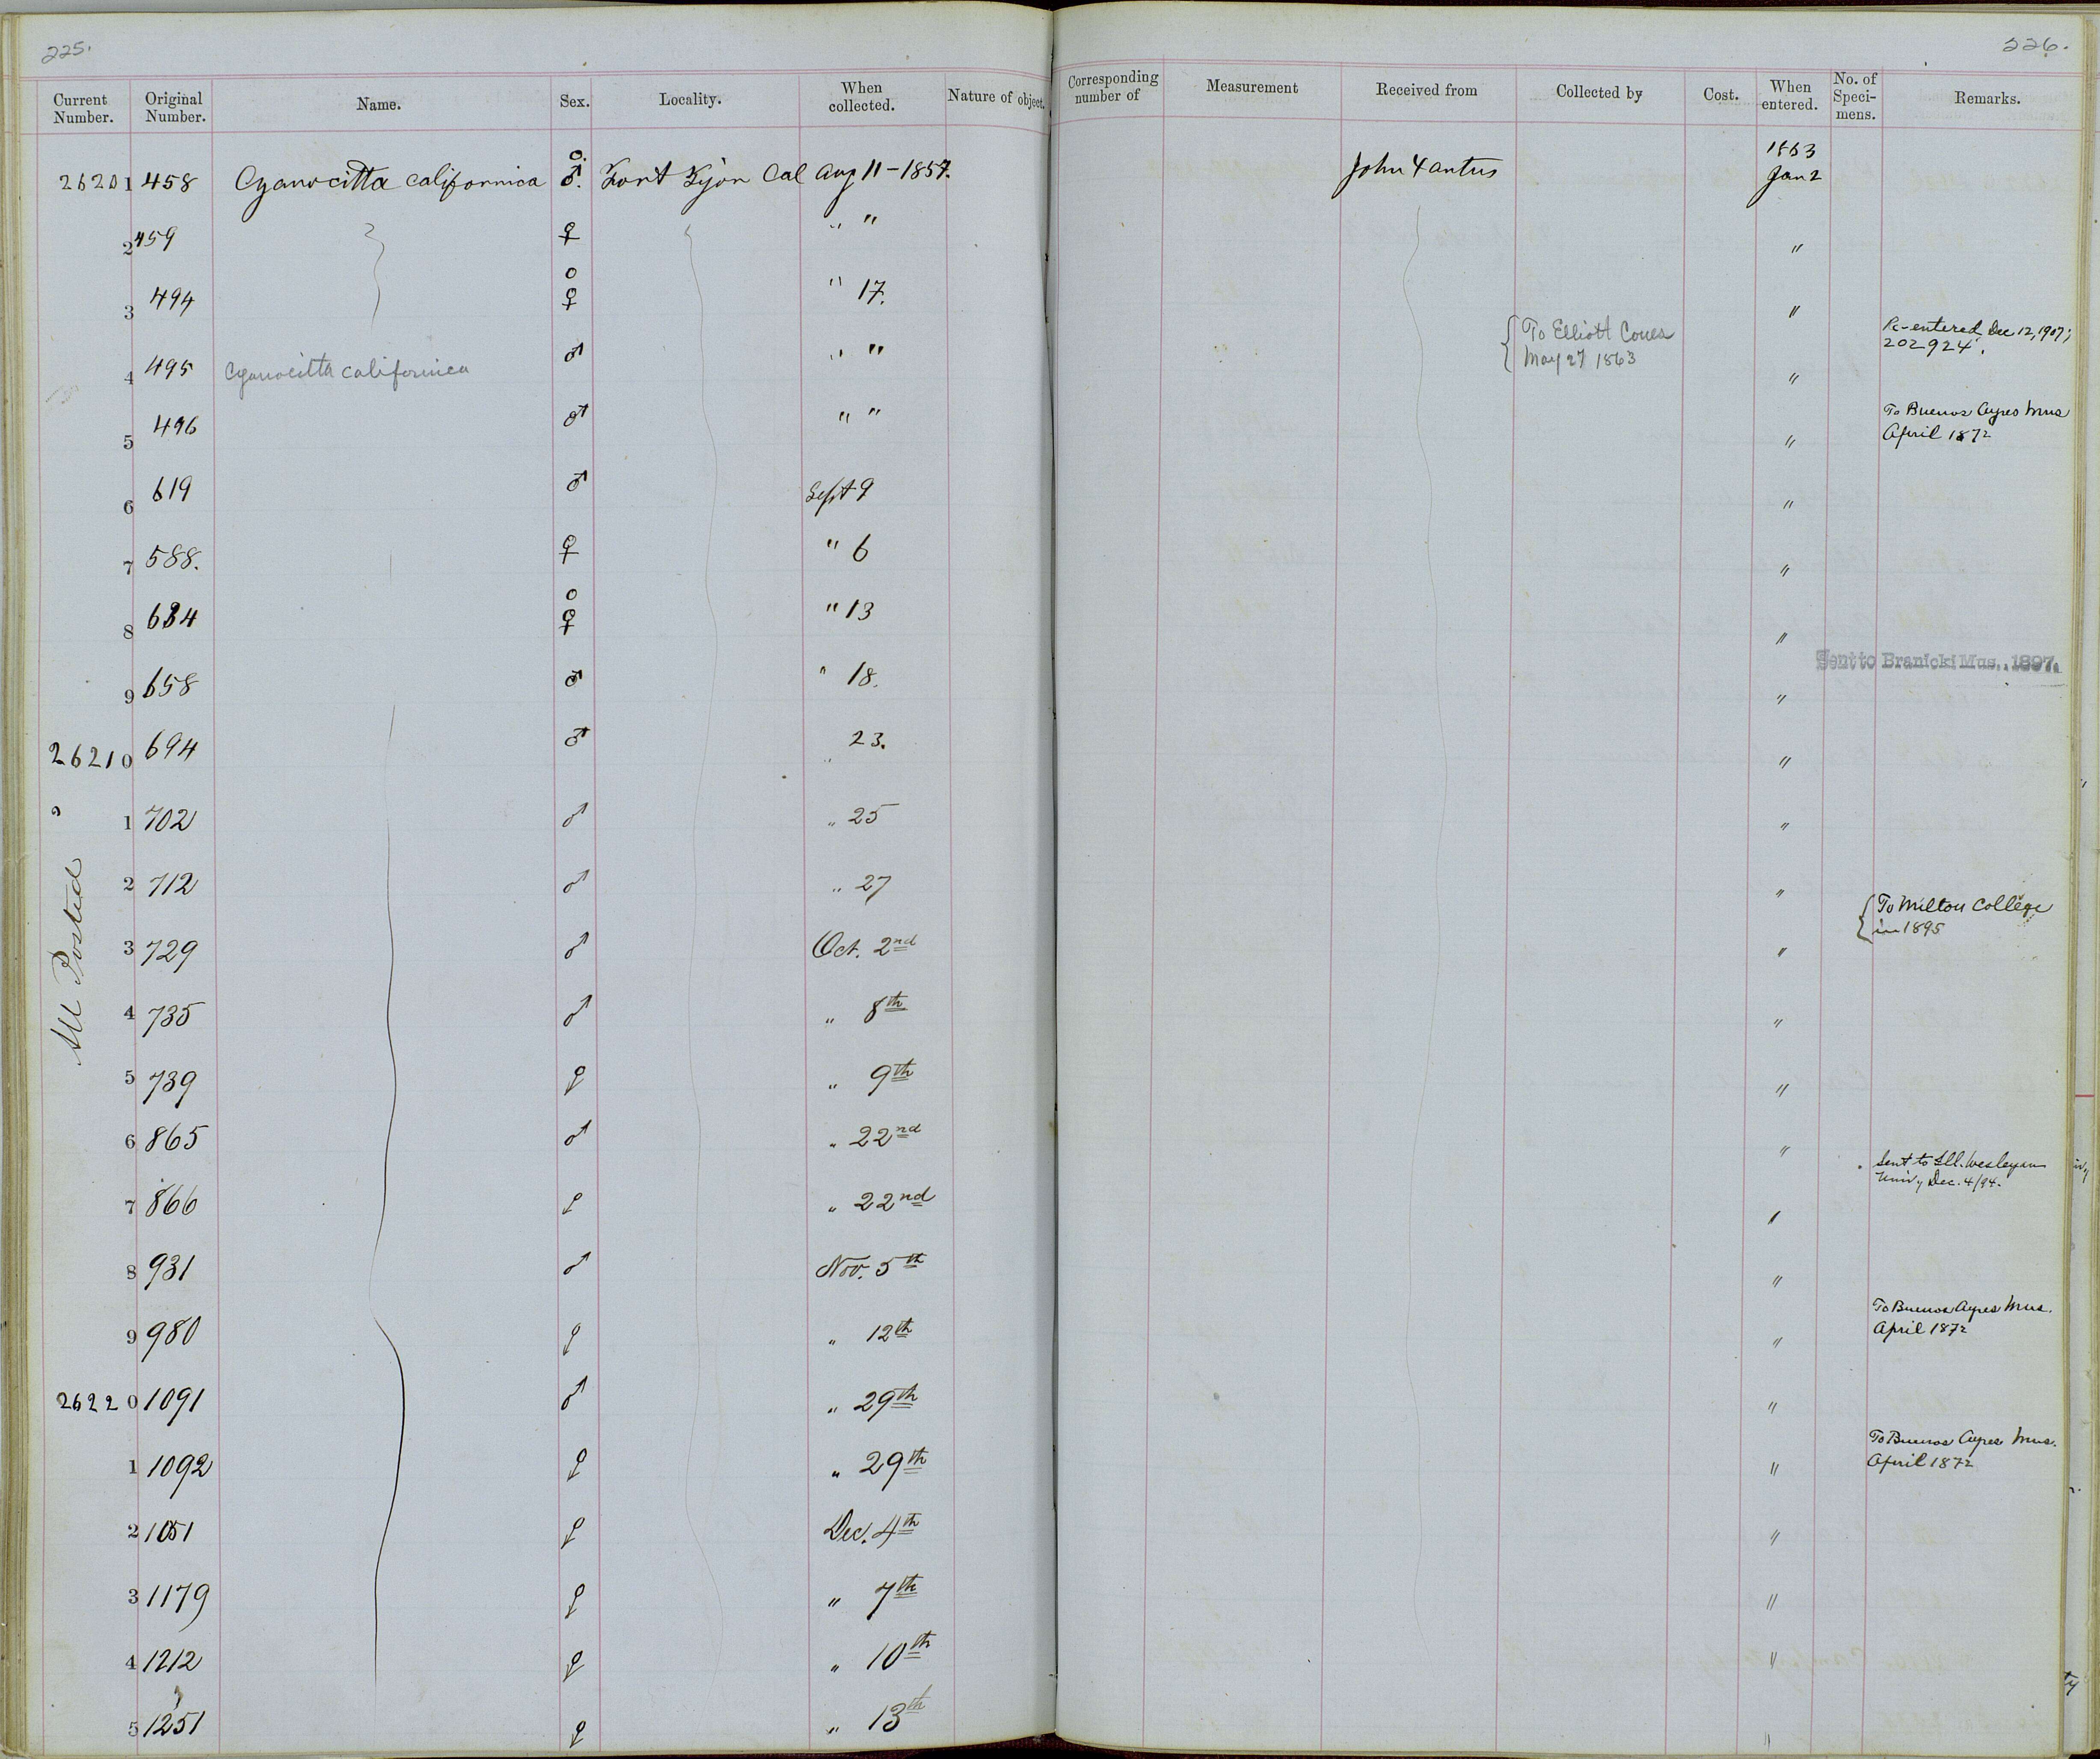 225.
226.
Current Number. Original Number. Name. Sex. Locality. When collected. Nature of object. Corresponding number of Measurement Received from Collected by Cost. When entered. No. of Specimens. Remarks.
26201 458 Cyanocitta californica ♂. Fort Tejon Cal Aug 11-1857. John Xantus 1863 Jan 2
2 459 ♀ " " "
3 494 ♀ " 17. "
4 495 Cyanocitta californica ♂ " " { To Elliott Coues May 27 1863 " Re-entered Dec 12, 1907; 202924.
5 496 ♂ " " " To Buenos Ayres Mus April 1872
6 619 ♂ Sept 9 "
7 588. ♀ " 6 "
8 634 ♀ " 13 "
9 658 ♂ " 18. " Sent to Branicki Mus., 1897.
26210 694 ♂ " 23. "
1 702 ♂ " 25 "
2 712 ♂ " 27 "
3 729 ♂ Oct. 2nd " { To Milton College in 1895
4 735 ♂ " 8th "
5 739 ♀ " 9th "
6 865 ♂ " 22nd "
7 866 ♀ " 22nd " Sent to Ill. Wesleyan Univ, Dec. 4/94.
8 931 ♂ Nov. 5th "
9 980 ♀ " 12th " To Buenos Ayres Mus. April 1872
26220 1091 ♂ " 29th "
1 1092 ♀ " 29th " To Buenos Ayres Mus. April 1872
2 1051 ♀ Dec. 4th "
3 1179 ♀ " 7th "
4 1212 ♀ " 10th "
5 1251 ♀ " 13th "
All Posted